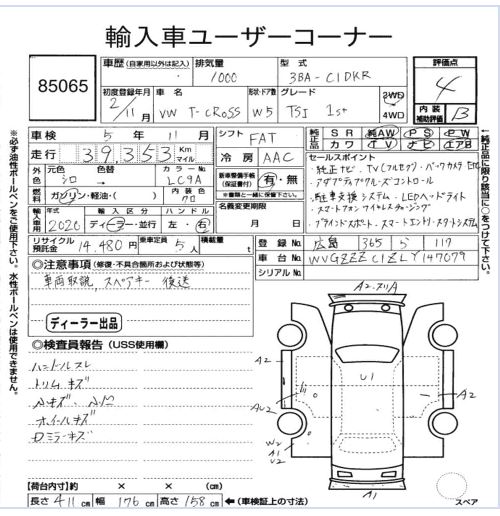 輸入車ユーザーコーナー
85065
車歴 (自家用以外は記入)
排気量 1000
型式 3BA-C1DKR
評価点 4
初度登録年月 2/11月
車名 VW T-CROSS
形状・ドア数 W5
グレード TSI 1st
2WD
4WD
内装補助評価 B
車検 5年11月
シフト FAT
純正品 SR 純AW PS PW
カワ TV ナビ エアB
走行 39,353 Km マイル
冷房 AAC
セールスポイント
・純正ナビ、TV(フルセグ)・バックカメラ ETC
外色 元色 シロ 色替
カラーNo LC9A
新車整備手帳 (保証書付) 有・無
・アダプティブクルーズコントロール
燃料 ガソリン・軽油・( )
内装色 クロ
・駐車支援システム・LEDヘッドライト
・スマートフォンワイヤレスチャージング
輸入車用 年式 2020
輸入区分 ディーラー・並行
ハンドル 左・右
名義変更期限 月 日
・ブラインドスポット・スマートエントリ・スタートシステム
リサイクル預託金 14,480円
乗車定員 5人
積載量 t
登録No. 広島 365 ら 117
車台No. WVGZZZC1ZLY147079
シリアルNo.
◎注意事項 (修復・不具合箇所および状態等)
車両取説、スペアキー 後送
ディーラー出品
◎検査員報告 (USS使用欄)
ハンドルスレ
トリムキズ
小キズ、小凹
ホイールキズ
ロミラーキズ
A2
A2
U1
A2
AU2
W2
A1
U2
A1
スペア
【荷台内寸】約 × × (cm)
長さ 411cm 幅 176cm 高さ 158cm ←(車検証上の寸法)
※必ず油性ボールペンをご使用下さい。水性ボールペンは使用できません。
純正品の限り該当に○をつけて下さい。